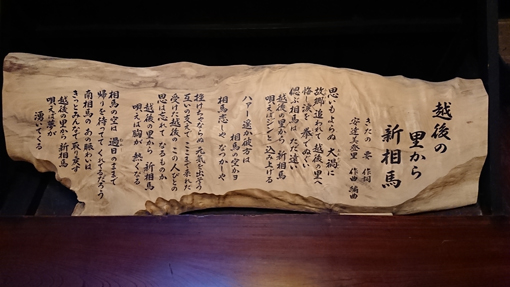 越後の
里から
新相馬
きたの 要 作詞
安達美登里 作曲 編曲
思いもよらぬ 大禍に
故郷追われて 越後の里へ
悔し涙を 拳でぬぐい
偲ぶ相馬は ただ遠い
越後の里から 新相馬
唄えばジンと 込み上げる
ハアー 遥か彼方は
相馬の空かヨ
相馬恋しや なつかしや
挫けちゃならぬと 元気を出そう
互いの支えで ここまで来れた
受けた越後の この人びとの
思は忘れて なるものか
越後の里から 新相馬
唄えば胸が 熱くなる
相馬の空は 過日のままで
帰りを待って いてくれるだろう
南相馬の あの賑わいは
きっとみんなで 取り戻す
越後の里から 新相馬
唄えば夢が
湧いてくる